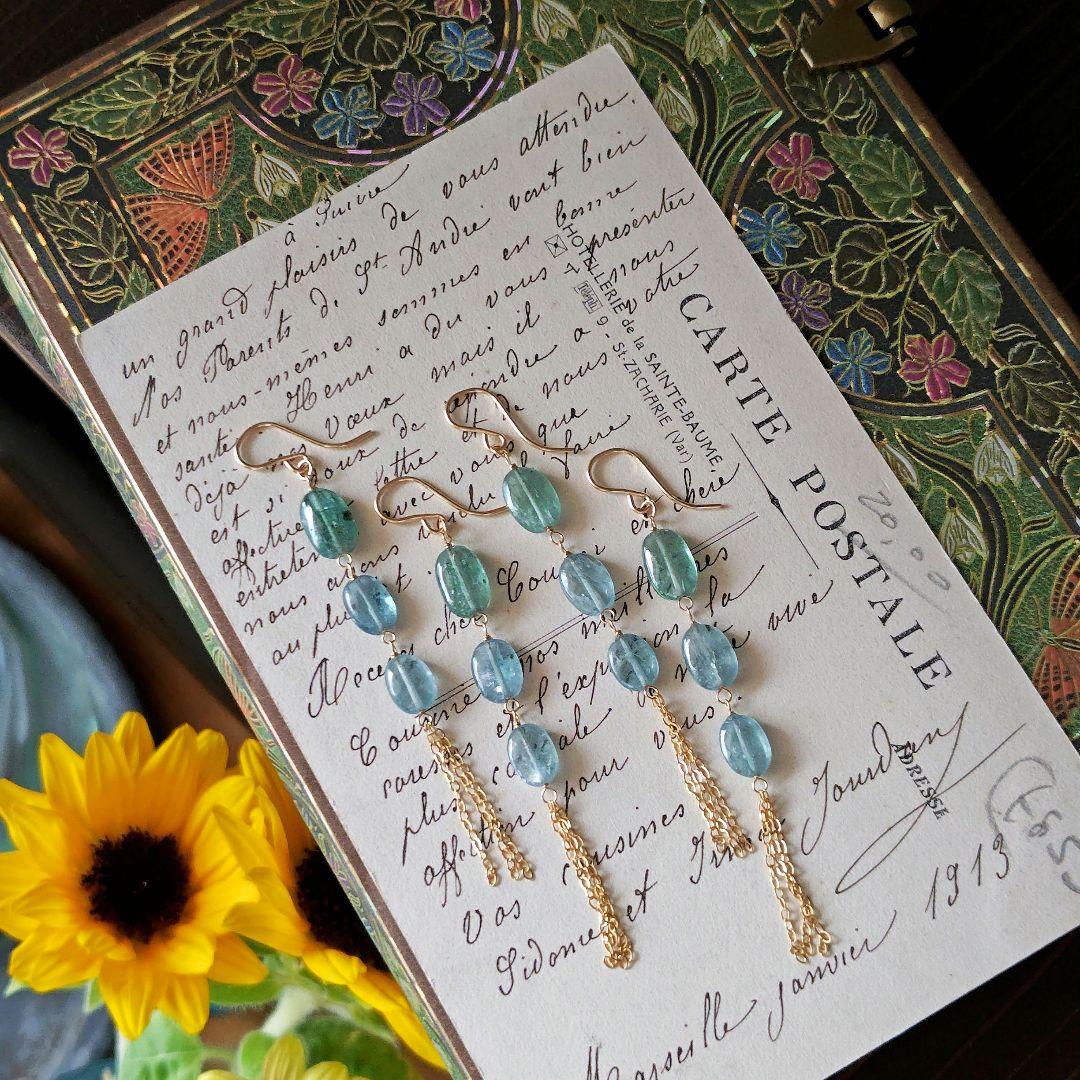 à suivre
un grand plaisir de vous attendre.
Nos Parents de St. André vont bien
et nous-mêmes sommes en bonne
santé. Henri a du vous présenter
déjà nos Vœux mais il nous
est si doux de à votre
affectueuse lettre et de nous
entretenir avec vous que
nous avons voulu faire
au plus tôt
Recevez chère Cousine et chère
Cousine nos meilleures
caresses et l'expression la
plus cordiale de notre vive
affection pour vous.
Vos cousines
Sidonie et Irma Jourdan
Marseille janvier 1913
HOTELLERIE de la SAINTE-BAUME,
9 - St-ZACHARIE (Var)
CARTE POSTALE
ADRESSE
20,00